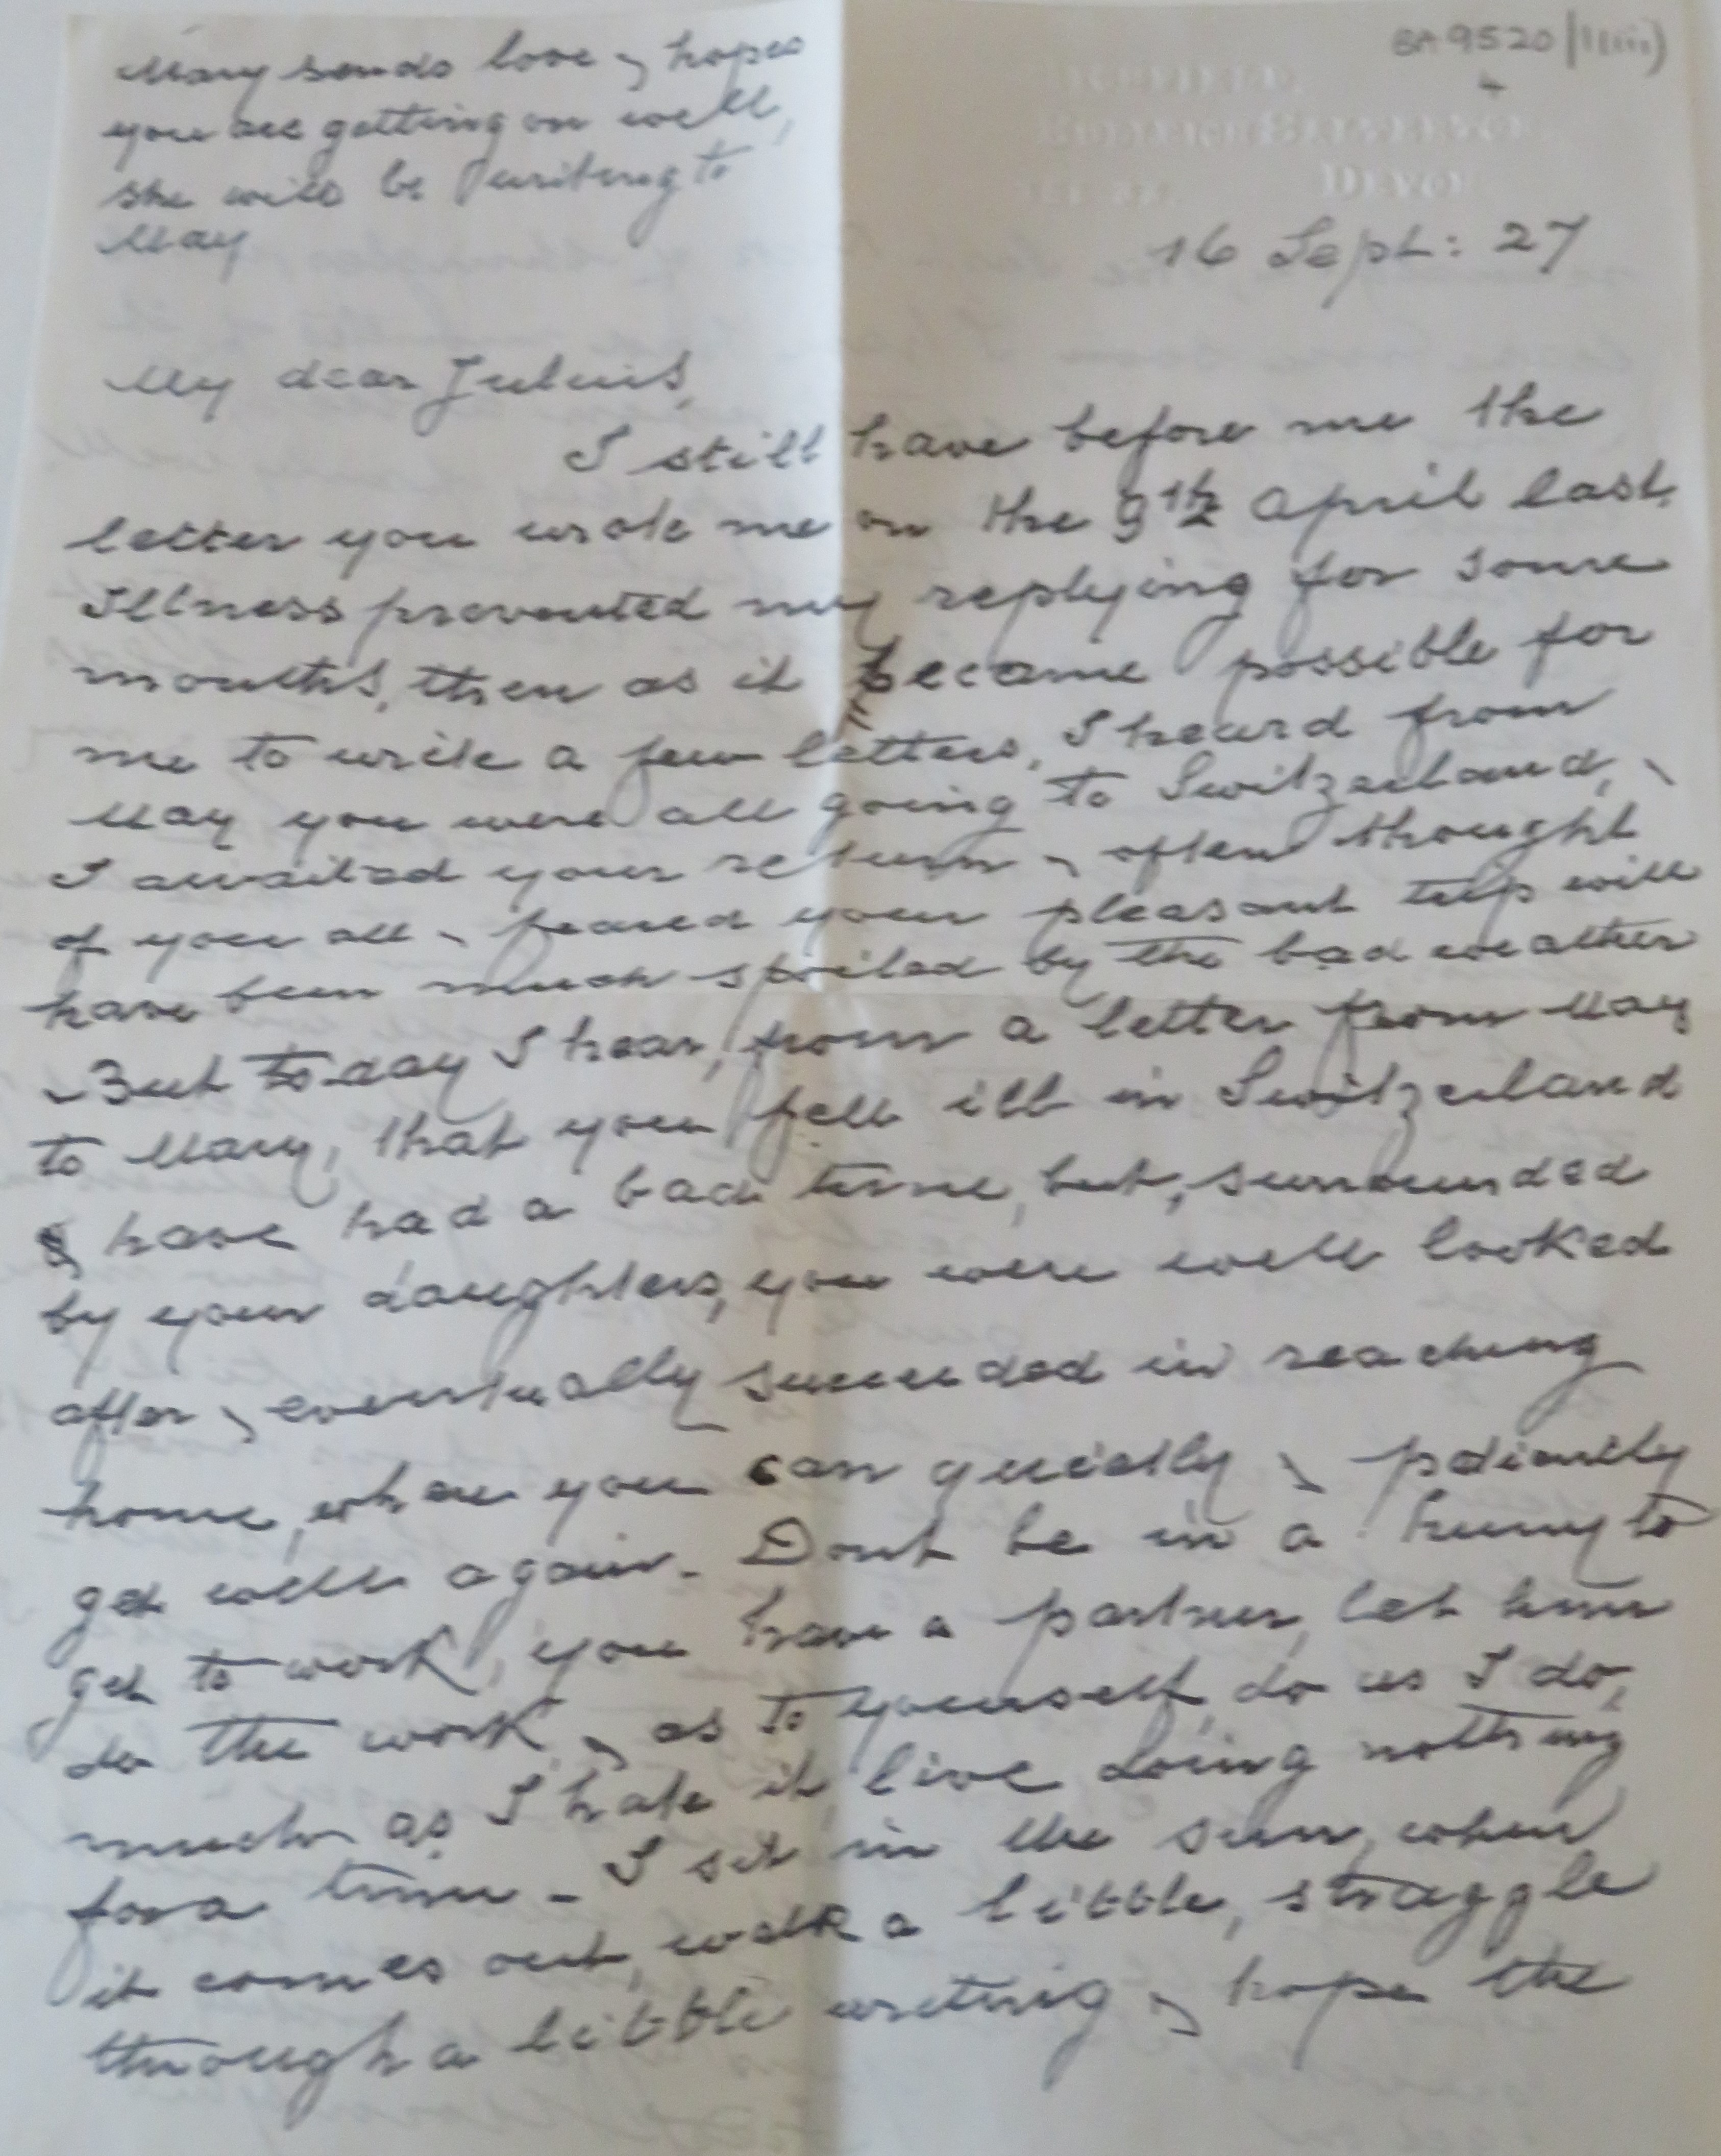 BA 9520/1(iii)
4
BUDLEIGH SALTERTON
DEVON
16 Sept: 27
Mary sends love & hopes
you are getting on well,
she will be writing to
May
My dear Julius,
I still have before me the
letter you wrote me on the 9th April last.
Illness prevented my replying for some
months, then as it became possible for
me to write a few letters, I heard from
May you were all going to Switzerland, &
I awaited your return & often thought
of you all & feared your pleasant trip will
have been much spoiled by the bad weather
- But today I hear, from a letter from May
to Mary, that you fell ill in Switzerland
& have had a bad time, but, surrounded
by your daughters, you were well looked
after & eventually succeeded in reaching
home, where you can quietly & patiently
get well again. Dont be in a hurry to
get to work, you have a partner, let him
do the work & as to yourself, do as I do,
much as I hate it, live doing nothing
for a time - I sit in the sun, when
it comes out, walk a little, straggle
through a little writing & hope the